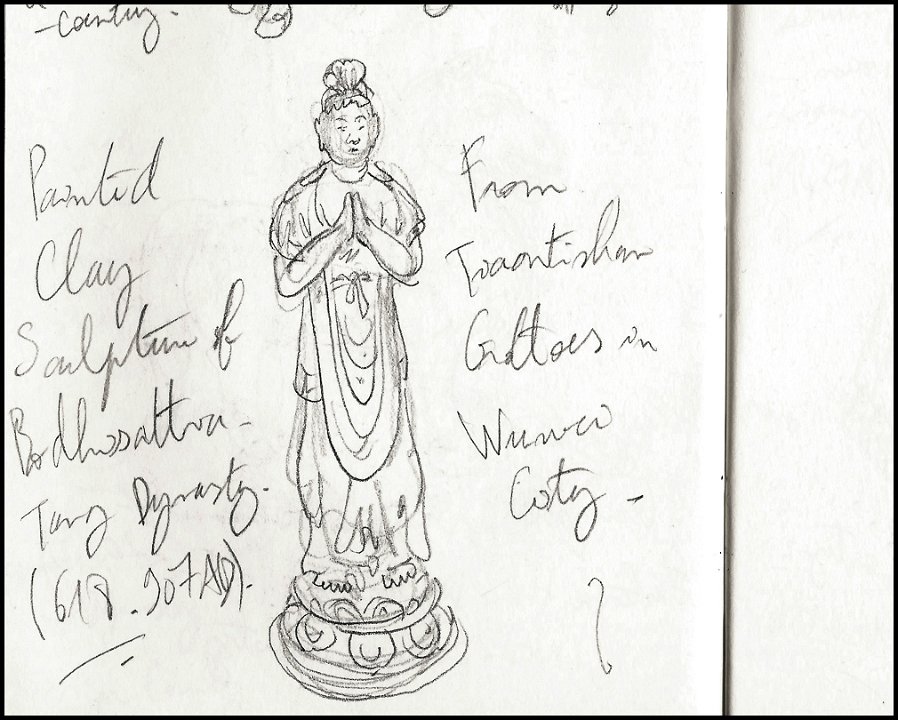 Painted
Clay
Sculpture of
Bodhissattva -
Tang Dynasty.
(618 - 907 AD).
From
Tiaantishan
Grottoes in
Wuwei
City -